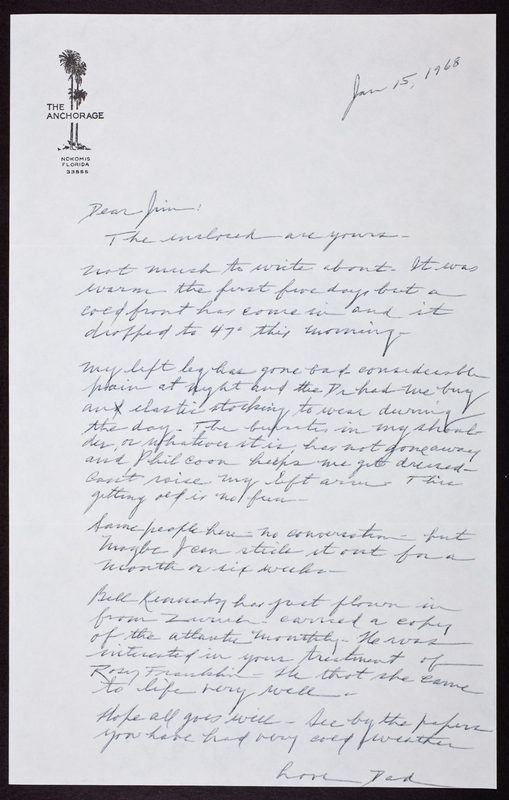 THE
ANCHORAGE
NOKOMIS
FLORIDA
33555
Jan 15, 1968
Dear Jim:
The enclosed are yours -
not much to write about - It was
warm the first five days but a
cold front has come in and it
dropped to 47° this morning -
My left leg has gone bad considerable
pain at night and the Dr had me buy
an elastic stocking to wear during
the day - The bursitis in my shoul-
der or whatever it is has not gone away
and Phil Coon helps me get dressed -
Can't raise my left arm - This
getting old is no fun -
Same people here - no conversation - but
maybe I can stick it out for a
month or six weeks -
Bill Kennedy has just flown in
from Zurich - carried a copy
of the atlantic monthly - He was
interested in your treatment of
Rosy Franklin - that she came
to life very well -
Hope all goes well - See by the papers
you have had very cold weather
Love Dad